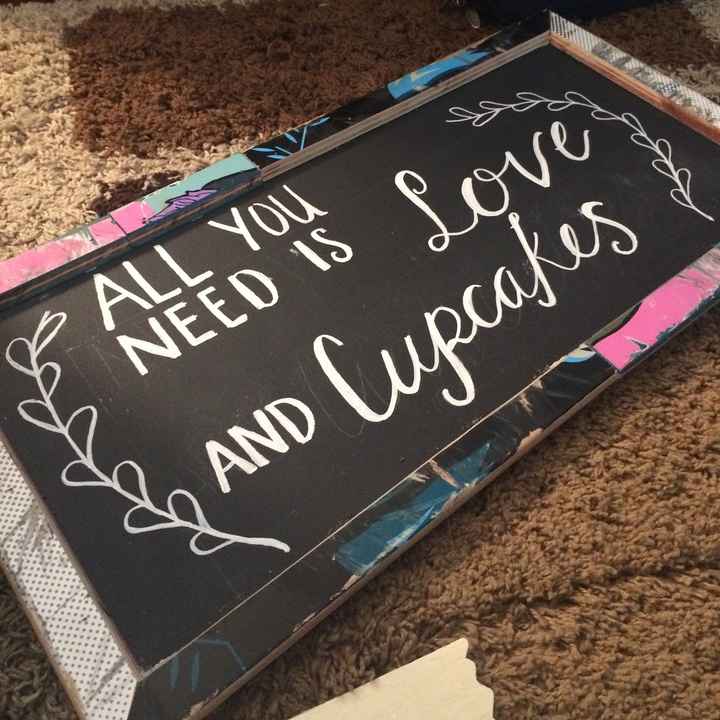 ALL YOU
NEED IS Love
AND Cupcakes